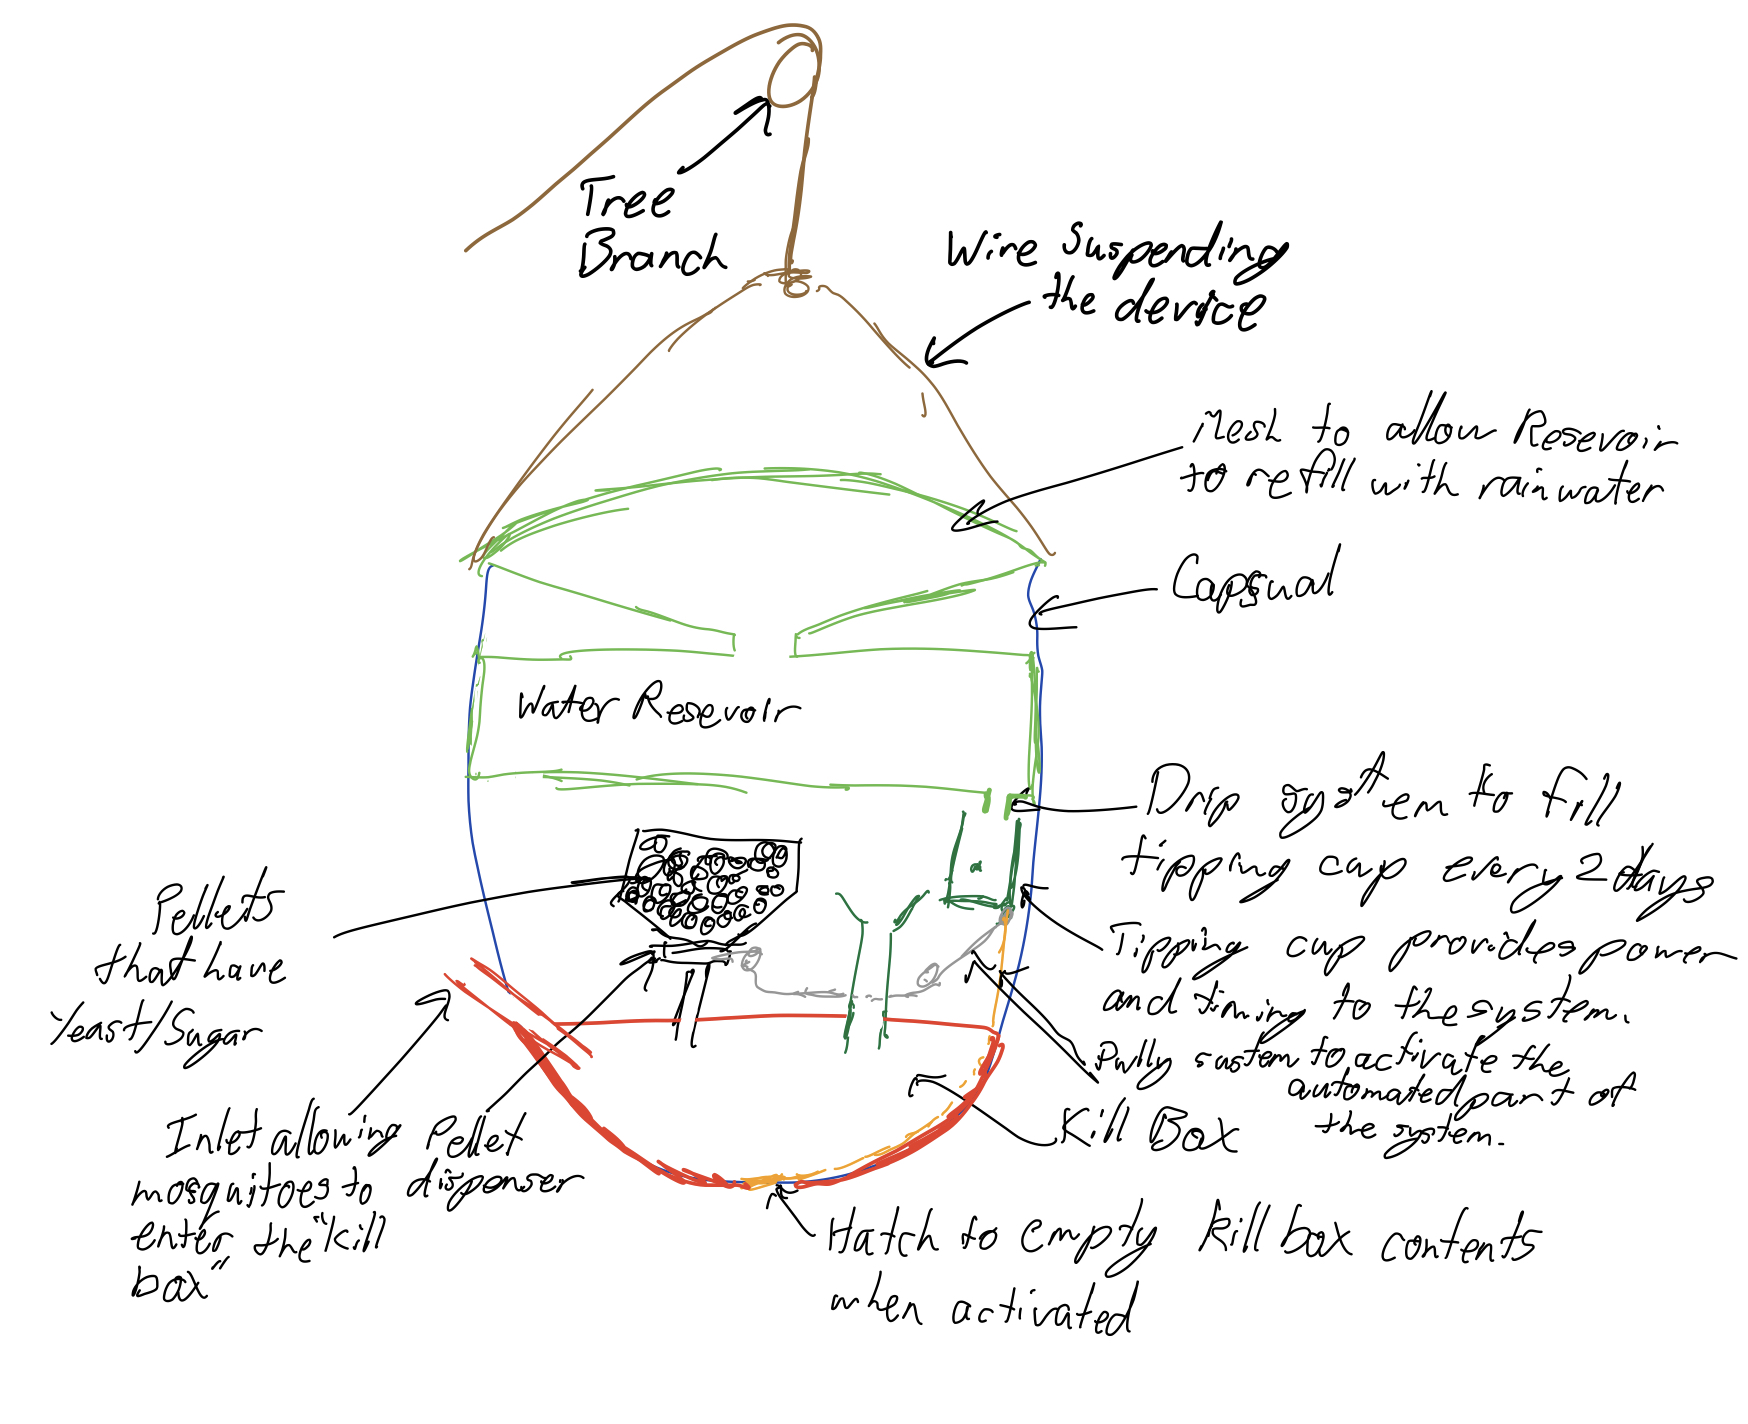 Tree
Branch
Wire Suspending
the device
Mesh to allow Resevoir
to refill with rainwater
Capsual
Water Resevoir
Drip system to fill
tipping cup every 2 days
Pellets
that have
Yeast/Sugar
Tipping cup provides power
and timing to the system.
Pully system to activate the
automated part of
the system.
Kill Box
Inlet allowing
mosquitoes to
enter the "kill
box"
Pellet
dispenser
Hatch to empty kill box contents
when activated